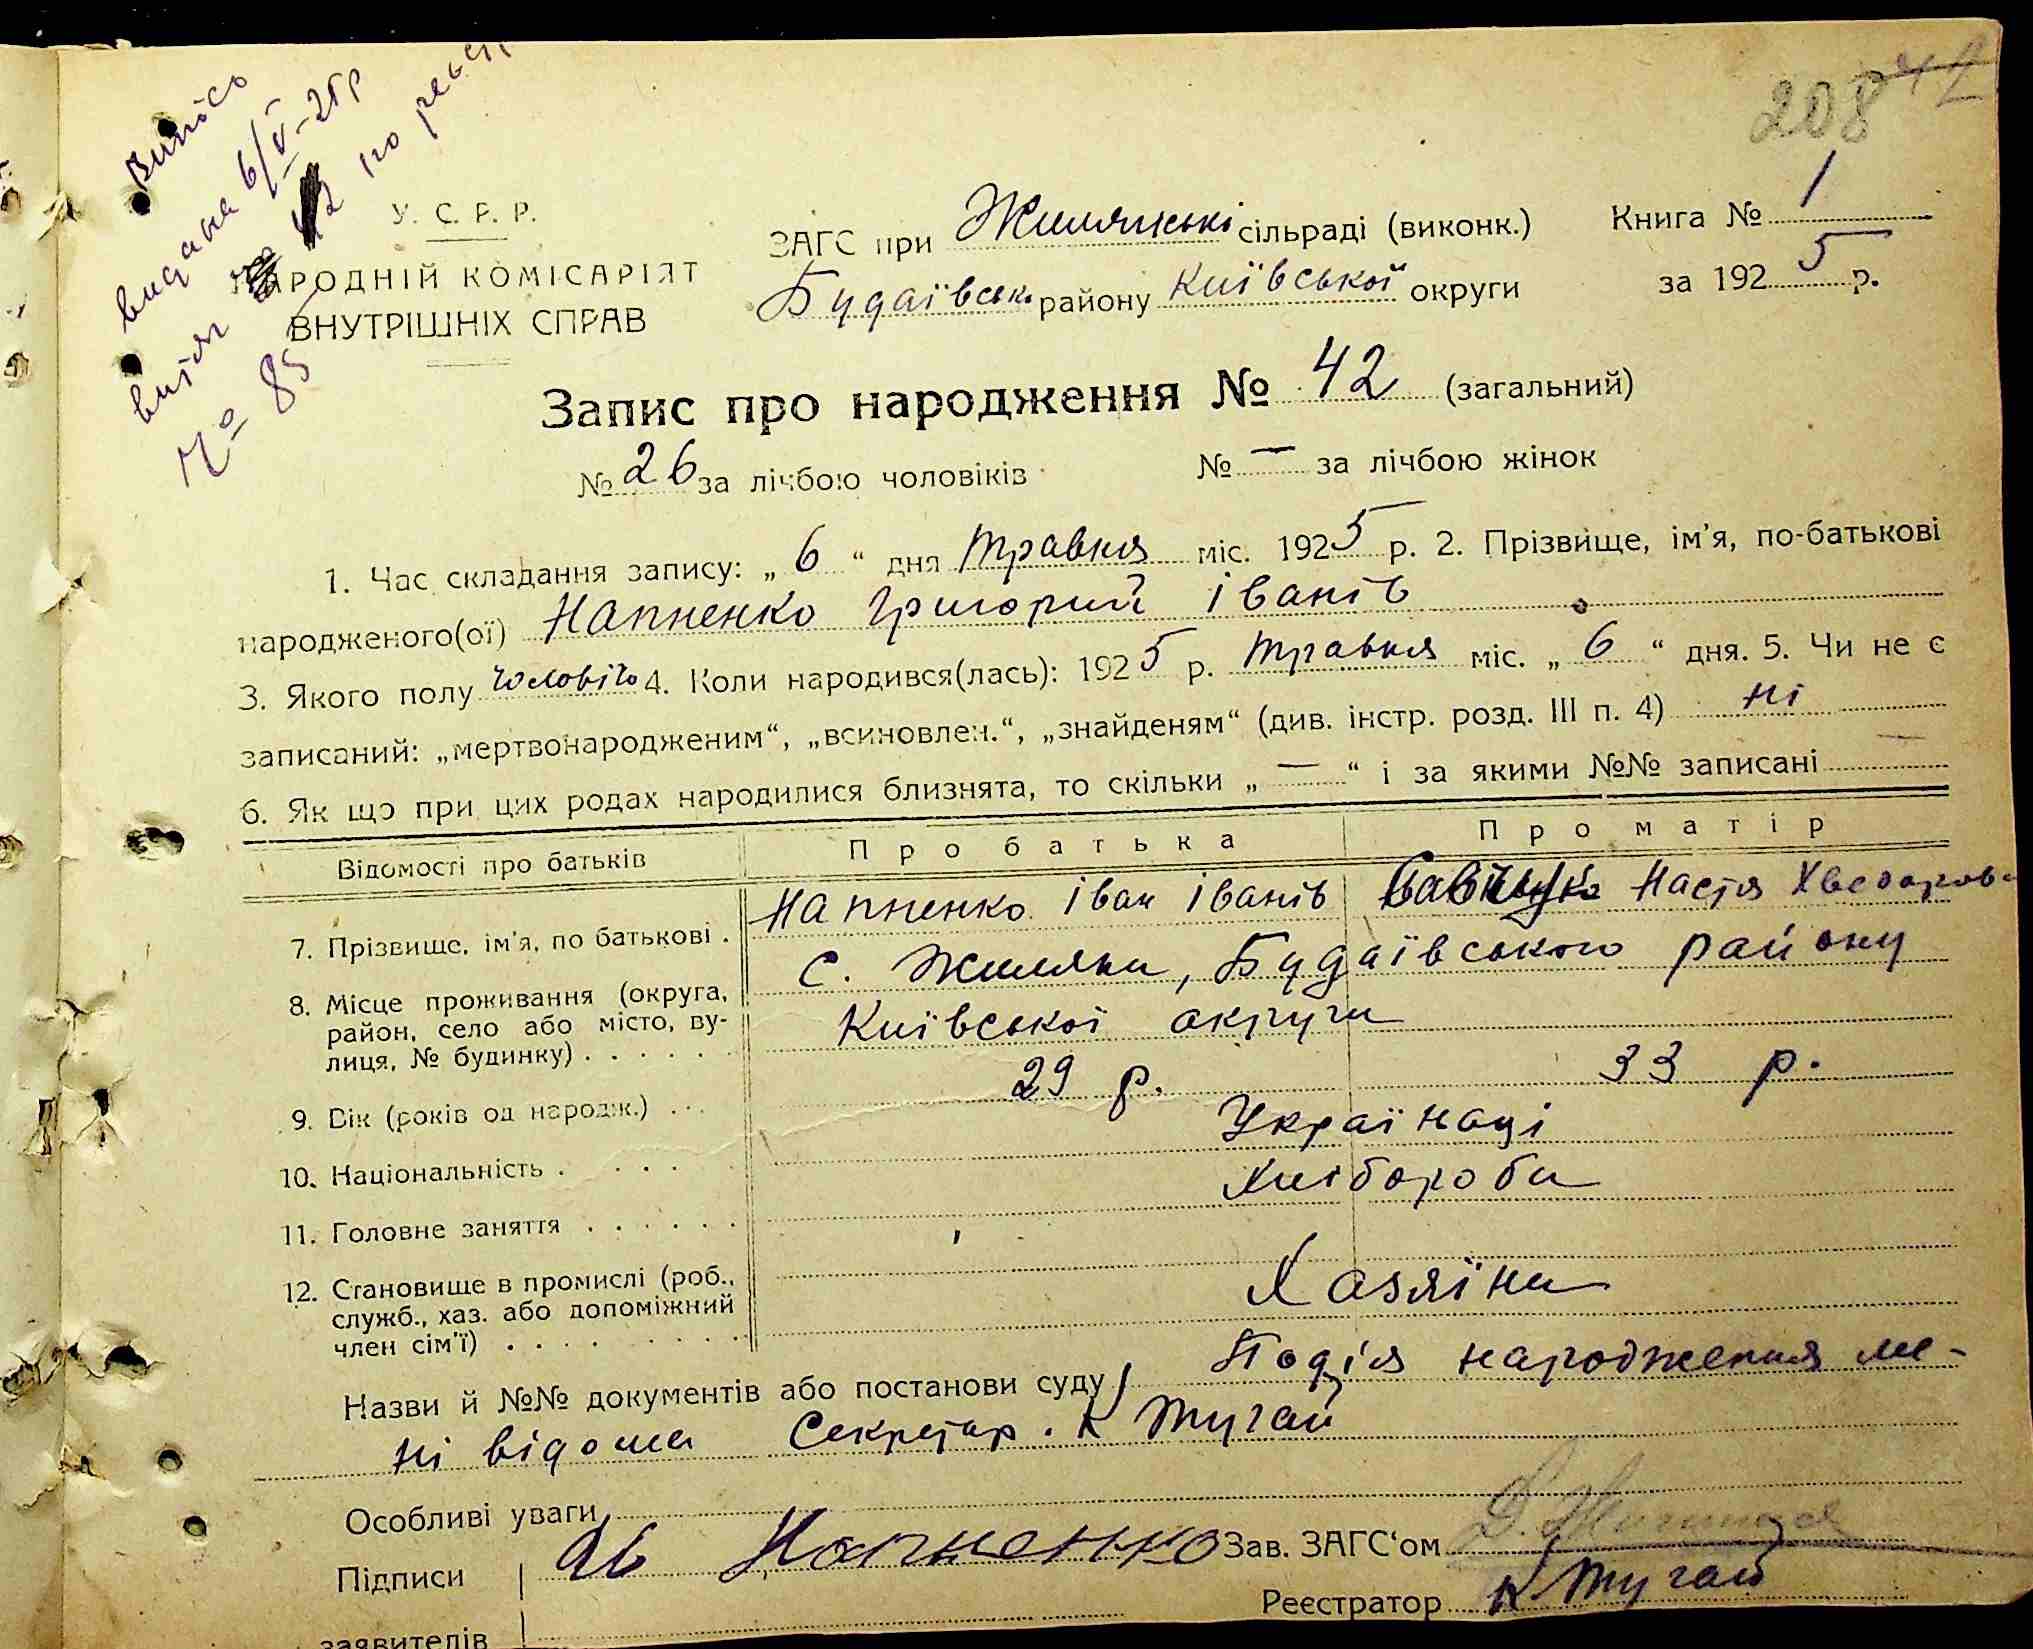 Випісь
видана 6/V-25р
42 по
№ 85
208 42
У. С. Р. Р.
НАРОДНІЙ КОМІСАРІЯТ
ВНУТРІШНІХ СПРАВ
ЗАГС при Жилянські сільраді (виконк.) Книга № 1
Будаївськ. району Київської округи за 1925 р.
Запис про народження № 42 (загальний)
№ 26 за лічбою чоловіків № — за лічбою жінок
1. Час складання запису: „ 6 “ дня травня міс. 1925 р. 2. Прізвище, ім'я, по-батькові
народженого(ої) Напненко Григорий Іванів
3. Якого полу чоловіч 4. Коли народився(лась): 1925 р. травня міс. „ 6 “ дня. 5. Чи не є
записаний: „мертвонародженим“, „всиновлен.“, „знайденям“ (див. інстр. розд. III п. 4) ні
6. Як що при цих родах народилися близнята, то скільки „ — “ і за якими №№ записані —
Відомості про батьків Про батька Про матір
7. Прізвище, ім'я, по батькові . Напненко Іван Іванів Настя Хведоров.
8. Місце проживання (округа, с. Жиляни, Будаївського району
район, село або місто, ву- Київської округи
лиця, № будинку) . . . . . .
9. Вік (років од народж.) . . . 29 р. 33 р.
10. Національність . . . . . Українці
11. Головне заняття . . . . . . Хлібороби
12. Становище в промислі (роб.,
служб., хаз. або допоміжний Хазяїни
член сім'ї) . . . . . . . . .
Назви й №№ документів або постанови суду Подія народження ме-
ні відома Секретар. К Тугай
Особливі уваги
Підписи Напненко Зав. ЗАГС‘ом
Реєстратор К Тугай
заявителів